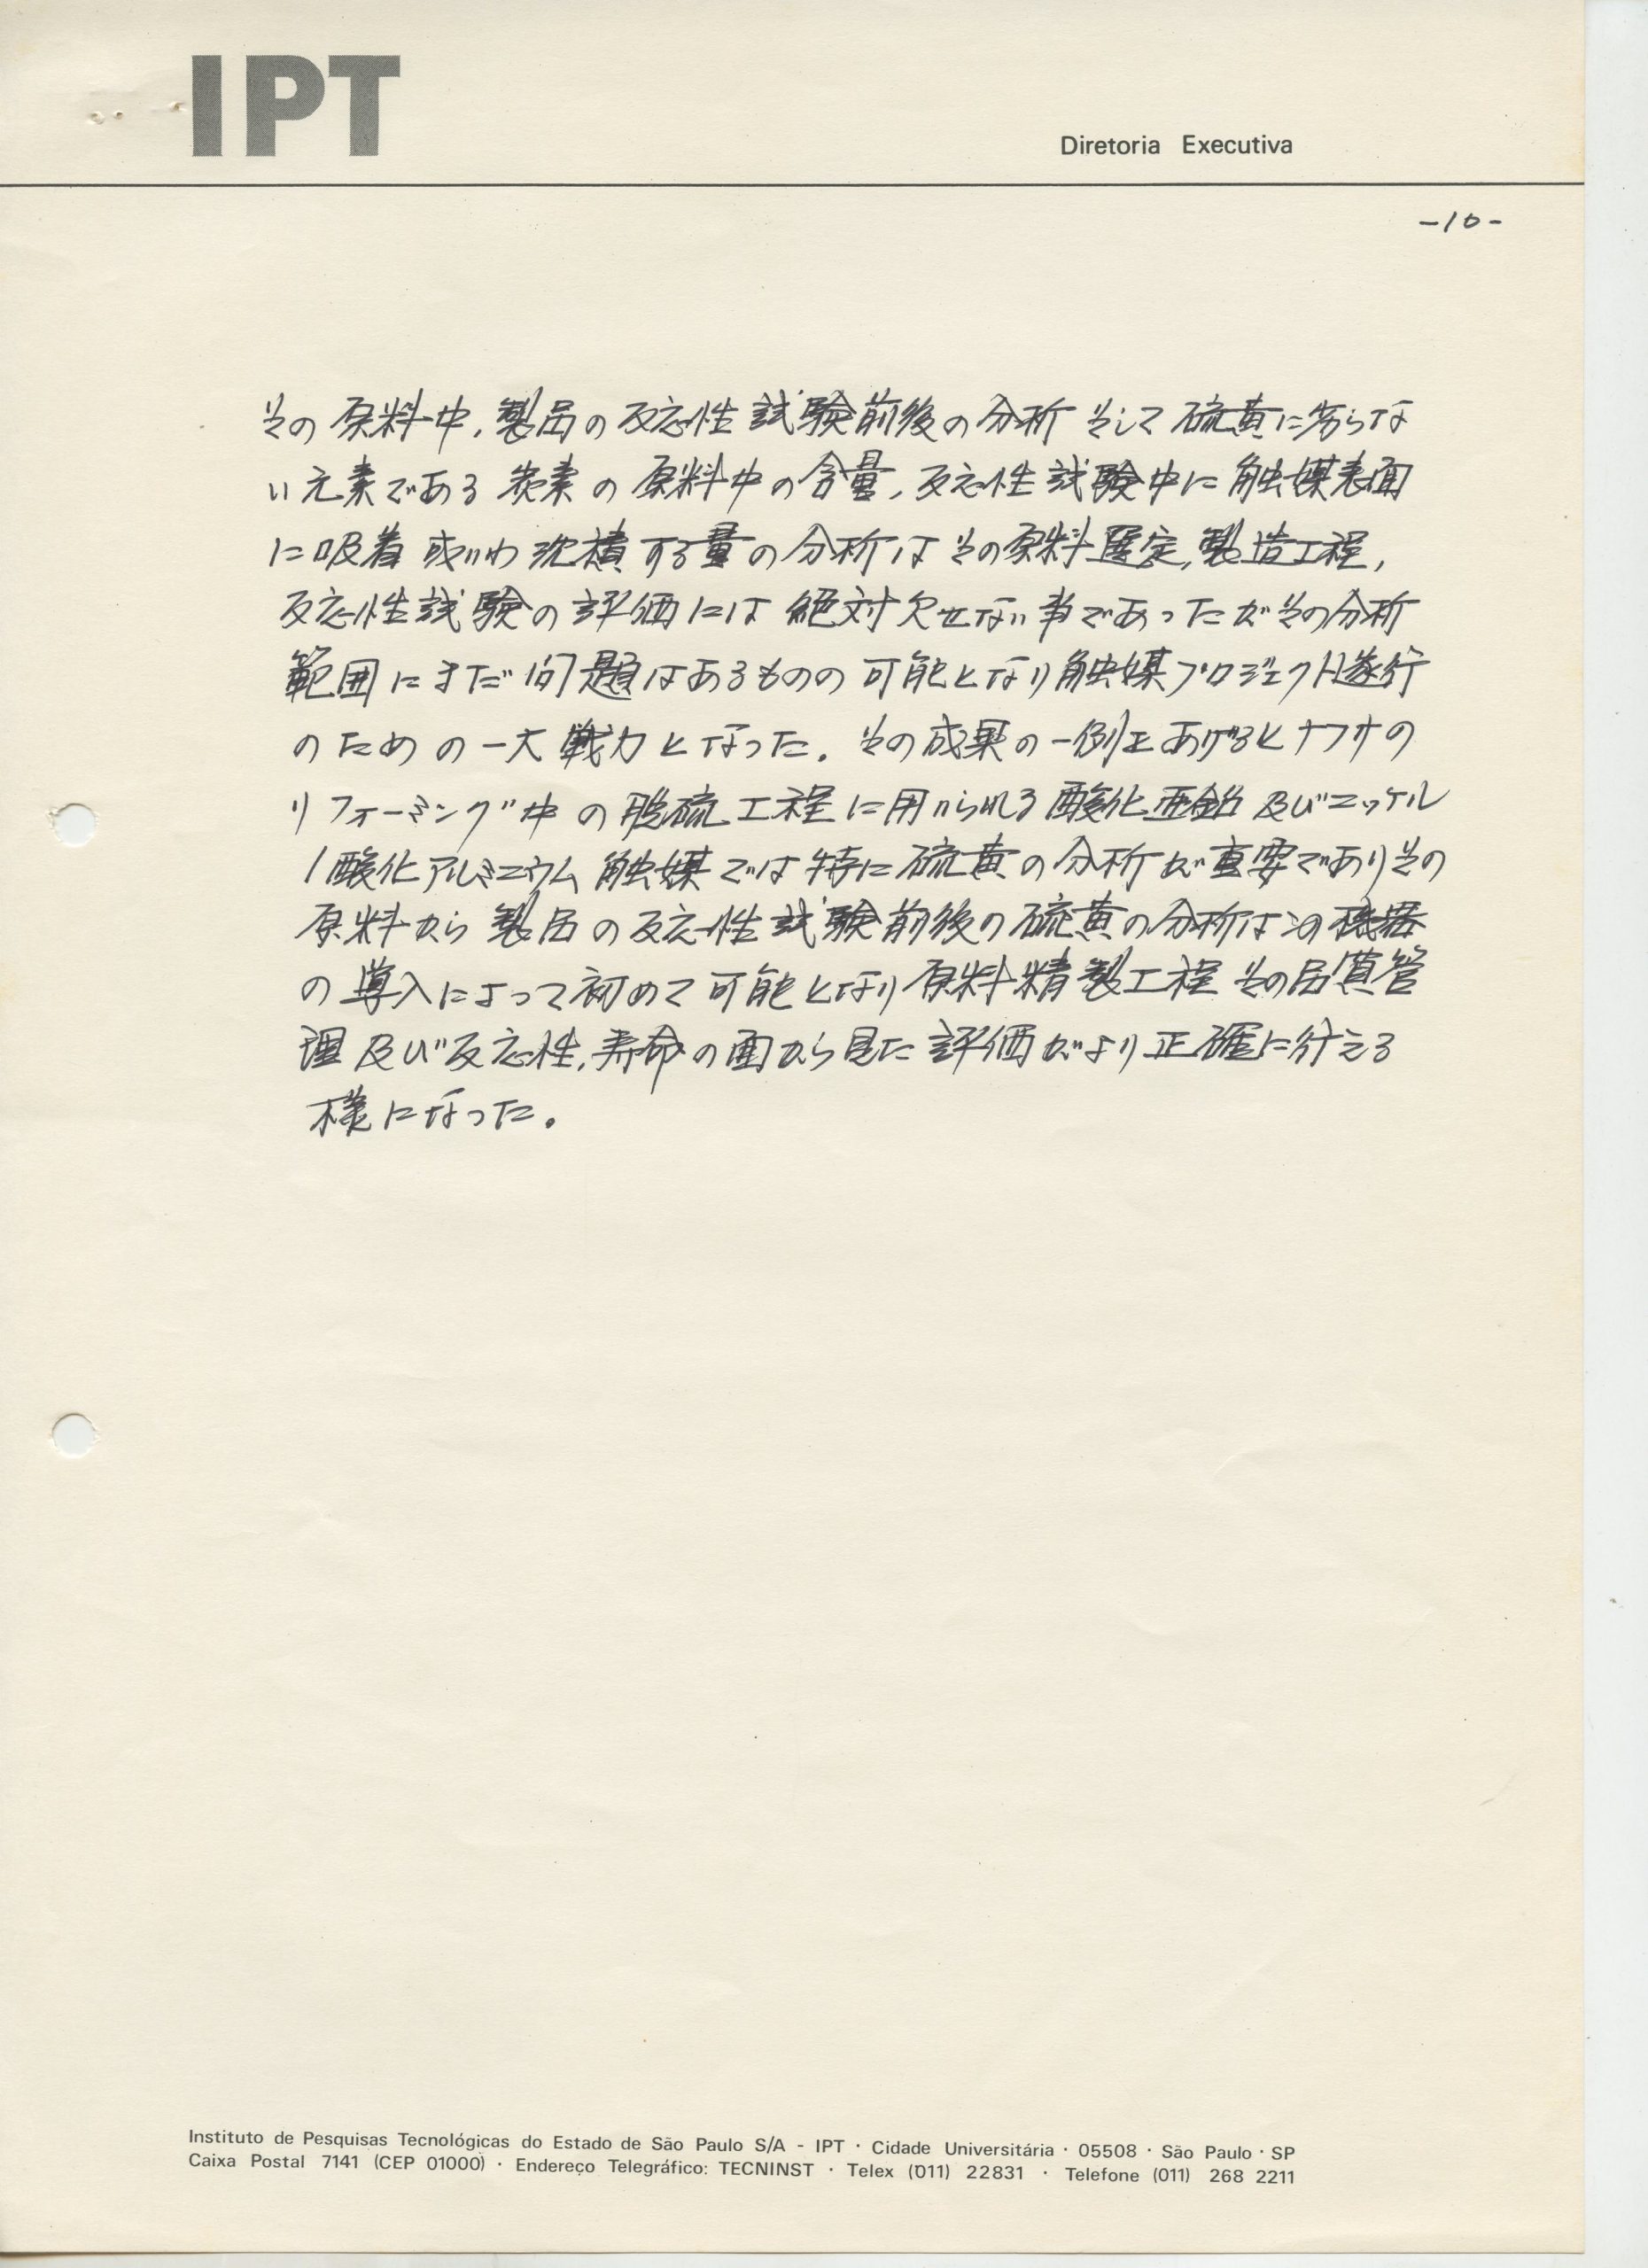 IPT
Diretoria Executiva
-10-
その原料中,製品の反応性試験前後の分析そして硫黄に劣らな
い元素である炭素の原料中の含量,反応性試験中に触媒表面
に吸着或いわ沈積する量の分析はその原料選定,製造工程,
反応性試験の評価には絶対欠せない事であったがその分析
範囲にまだ問題はあるものの可能となり触媒プロジェクト遂行
のための一大戦力となった。その成果の一例をあげるとナフサの
リフォーミング中の脱硫工程に用いられる酸化亜鉛及びニッケル
/酸化アルミニウム触媒では特に硫黄の分析が重要でありその
原料から製品の反応性試験前後の硫黄の分析はこの機器
の導入によって初めて可能となり原料精製工程その品質管
理及び反応性,寿命の面から見た評価がより正確に行える
様になった。
Instituto de Pesquisas Tecnológicas do Estado de São Paulo S/A - IPT · Cidade Universitária · 05508 · São Paulo · SP
Caixa Postal 7141 (CEP 01000) · Endereço Telegráfico: TECNINST · Telex (011) 22831 · Telefone (011) 268 2211